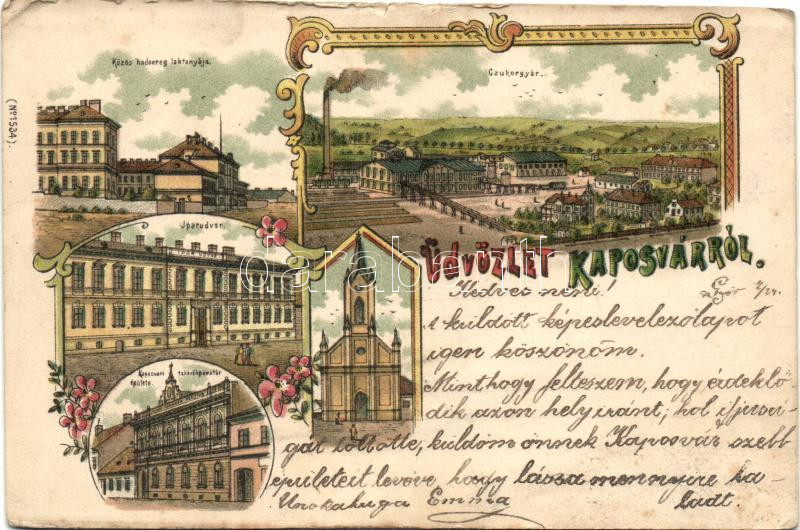 (No 1534).
Közös hadsereg laktanyája.
Czukorgyár.
Iparudvar.
Kaposvári takarékpénztár
épülete.
ÜDVÖZLET KAPOSVÁRRÓL.
darabanth.com
Kedves néni! 2/24
A küldött képeslevelezőlapot
igen köszönöm.
Minthogy felteszem, hogy érdeklő-
dik azon hely iránt, hol ifjusá-
gát töltötte, küldöm önnek Kaposvár szebb
épületeit levéve hogy lássa mennyire ha-
Unokahuga Emma ladt.